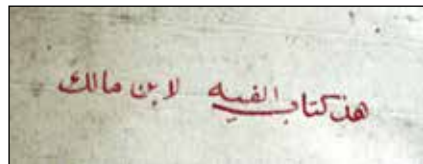 هذ كتاب الفيه لابن مالك